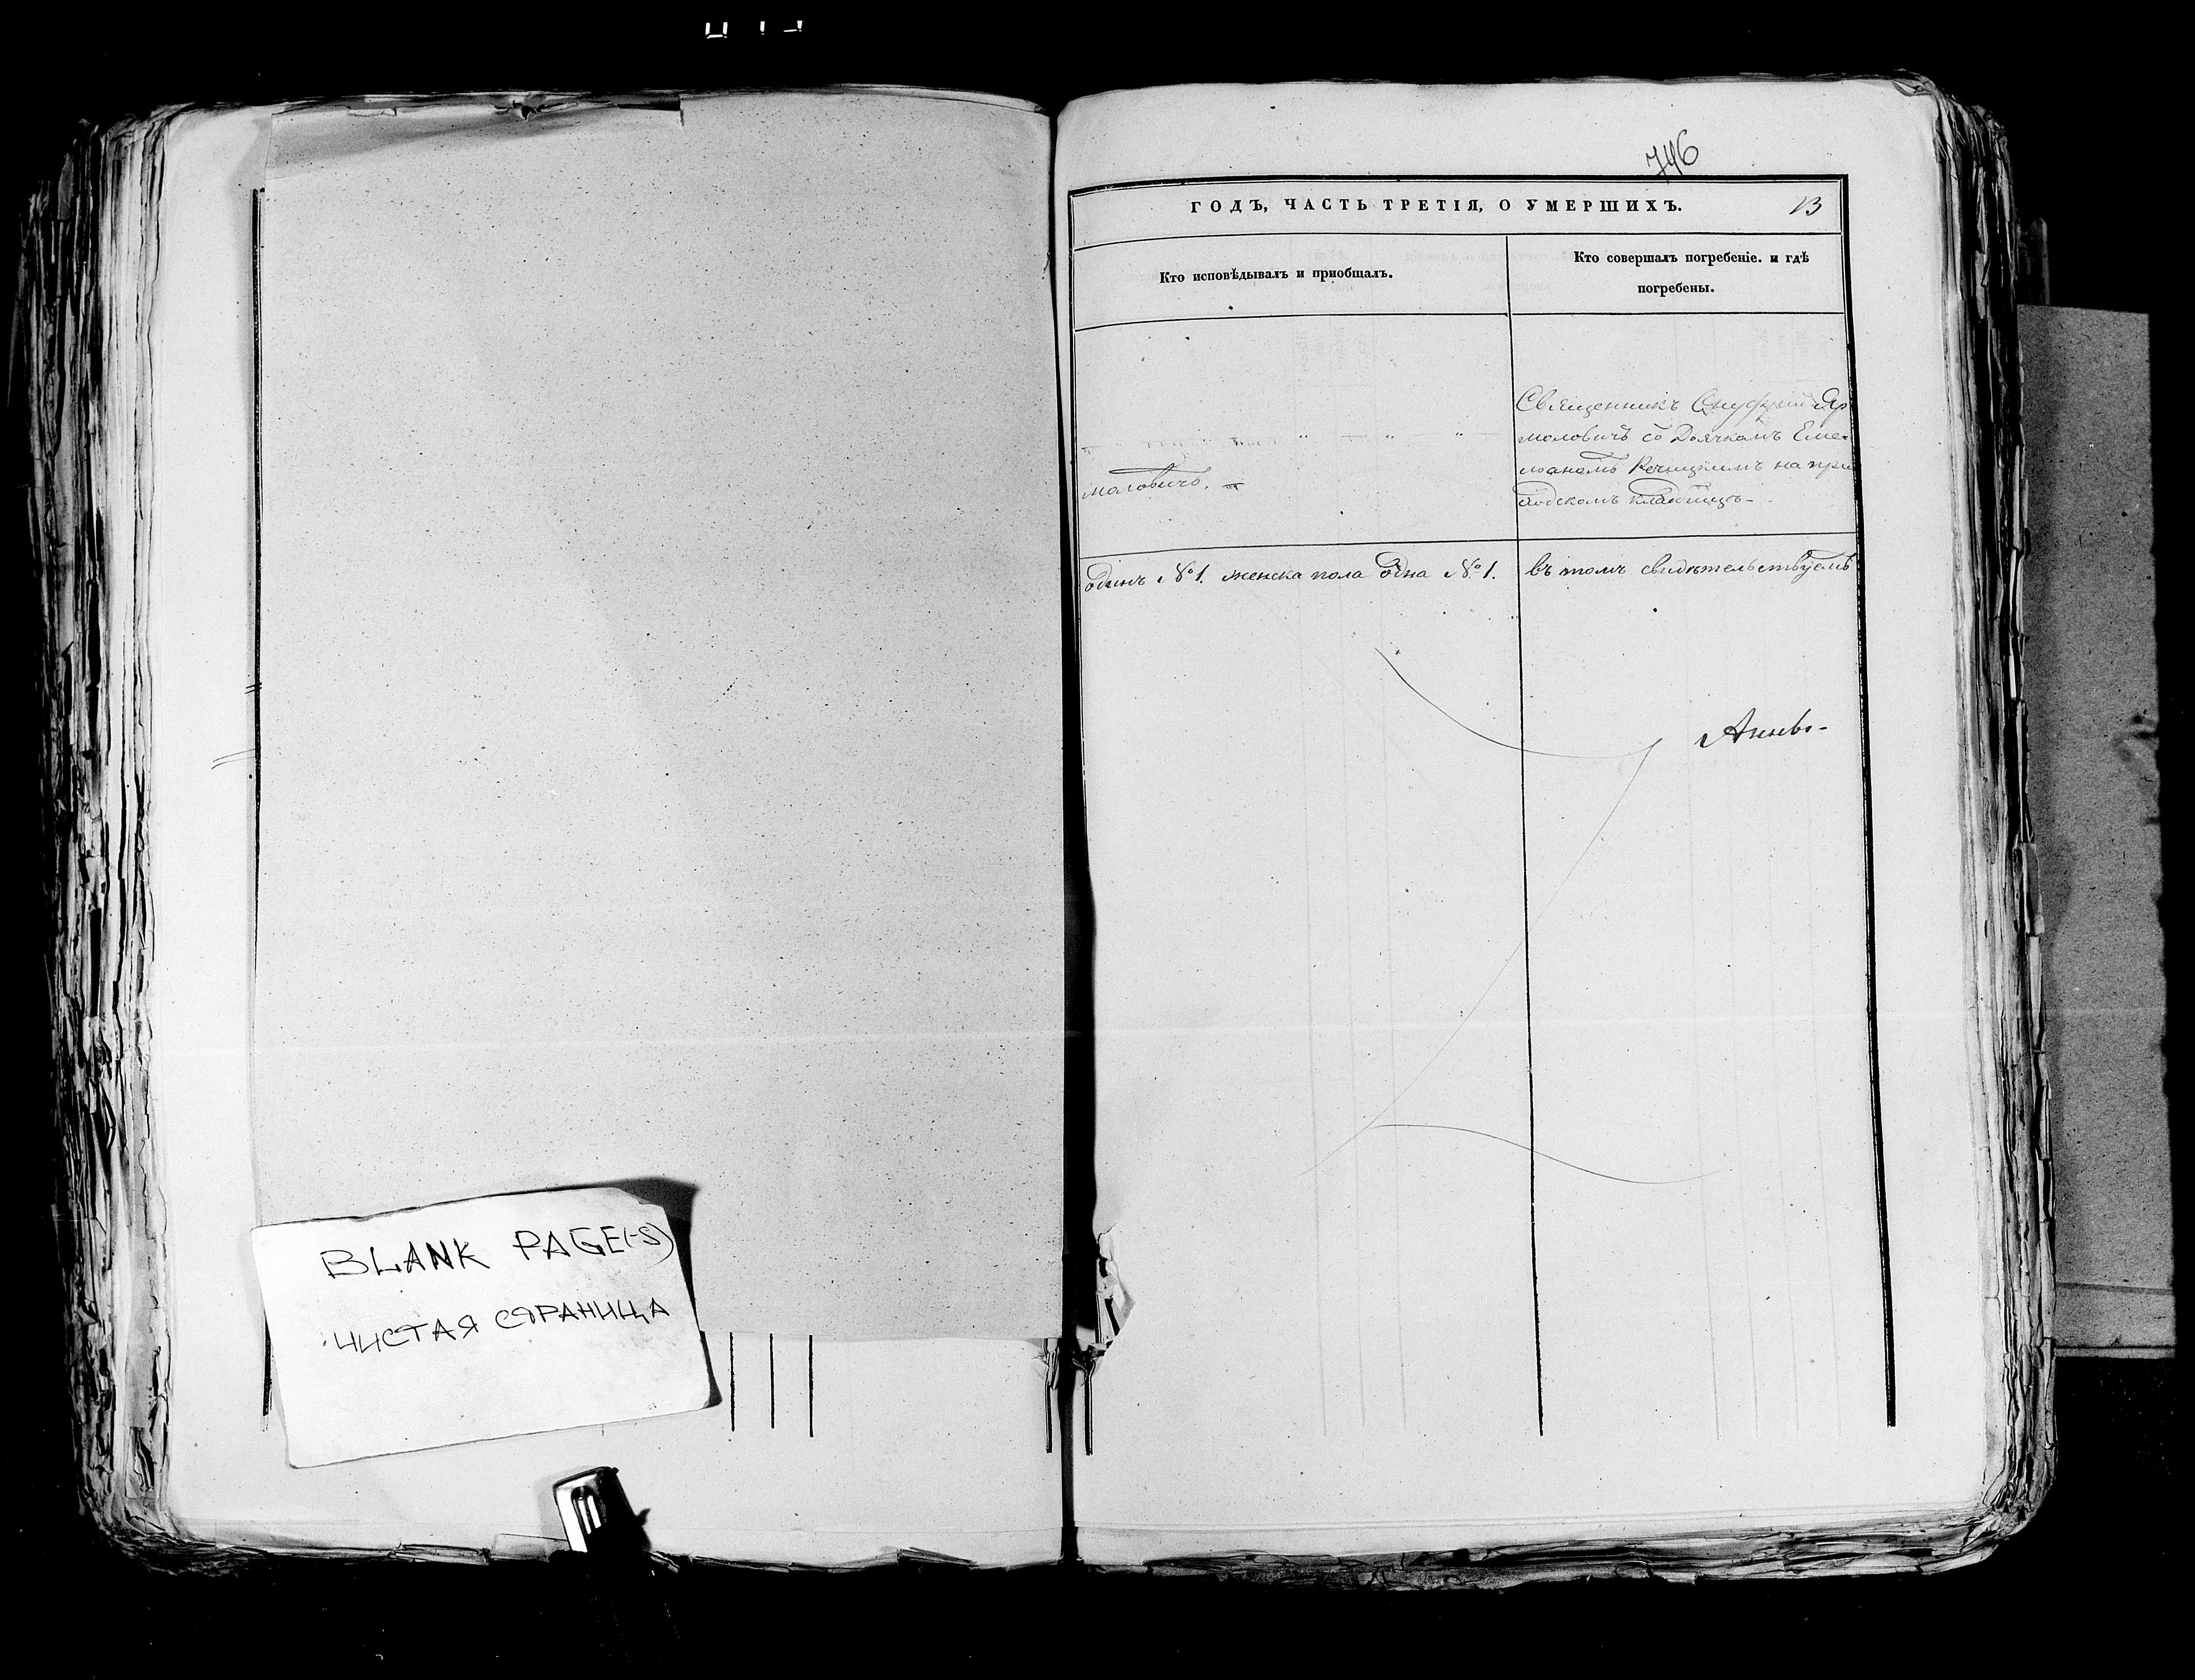 BLANK PAGE(-S)
ЧИСТАЯ СТРАНИЦА
746
ГОДЪ, ЧАСТЬ ТРЕТІЯ, О УМЕРШИХЪ.
13
Кто исповѣдывалъ и пріобщалъ.
Кто совершалъ погребеніе. и гдѣ
погребены.
моловичъ.
Священникъ Онуфрій Яр
моловичъ со Дьячкомъ Еме-
ліаномъ Речицкимъ на при
ходскомъ кладбищѣ-
одинъ №1. женска пола одна №1.
въ томъ свидѣтельствуемъ